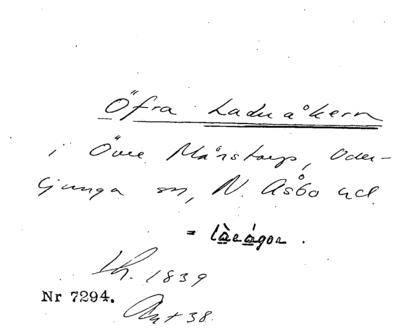 Öfra Laduåkern
i Övre Månstorp, Oder-
ljunga sn, N. Åsbo hd.
= làeágor.
Lh. 1839
Nr 7294.
Akt 38.